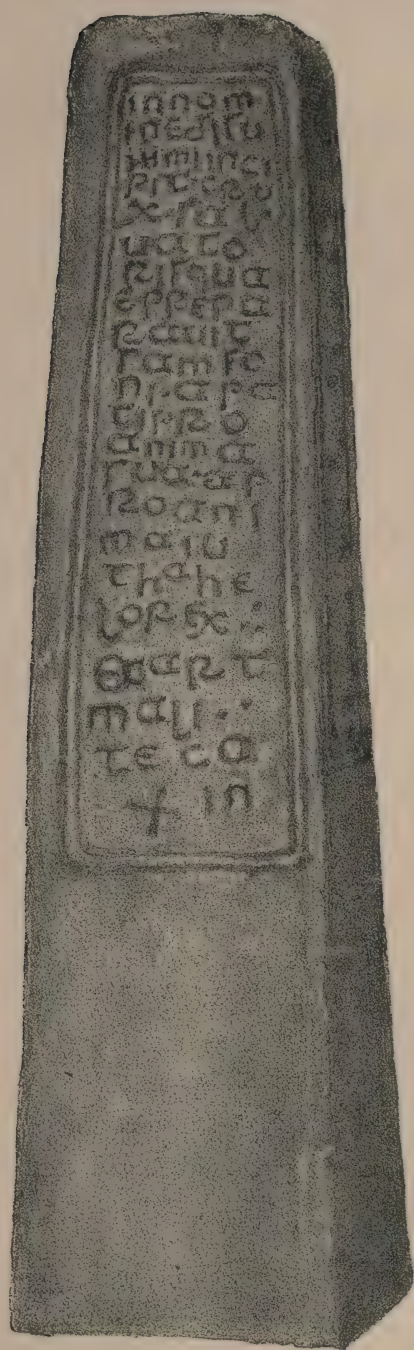 innom
inedisu
mmiinci
pitcru
x·sal
uato
risqua
eprepa
rauit
samso
ni·apa
tipro
amma
sua·ap
roani
maiu
thahe
lorex :·
art
mali ·:
teca
+ in